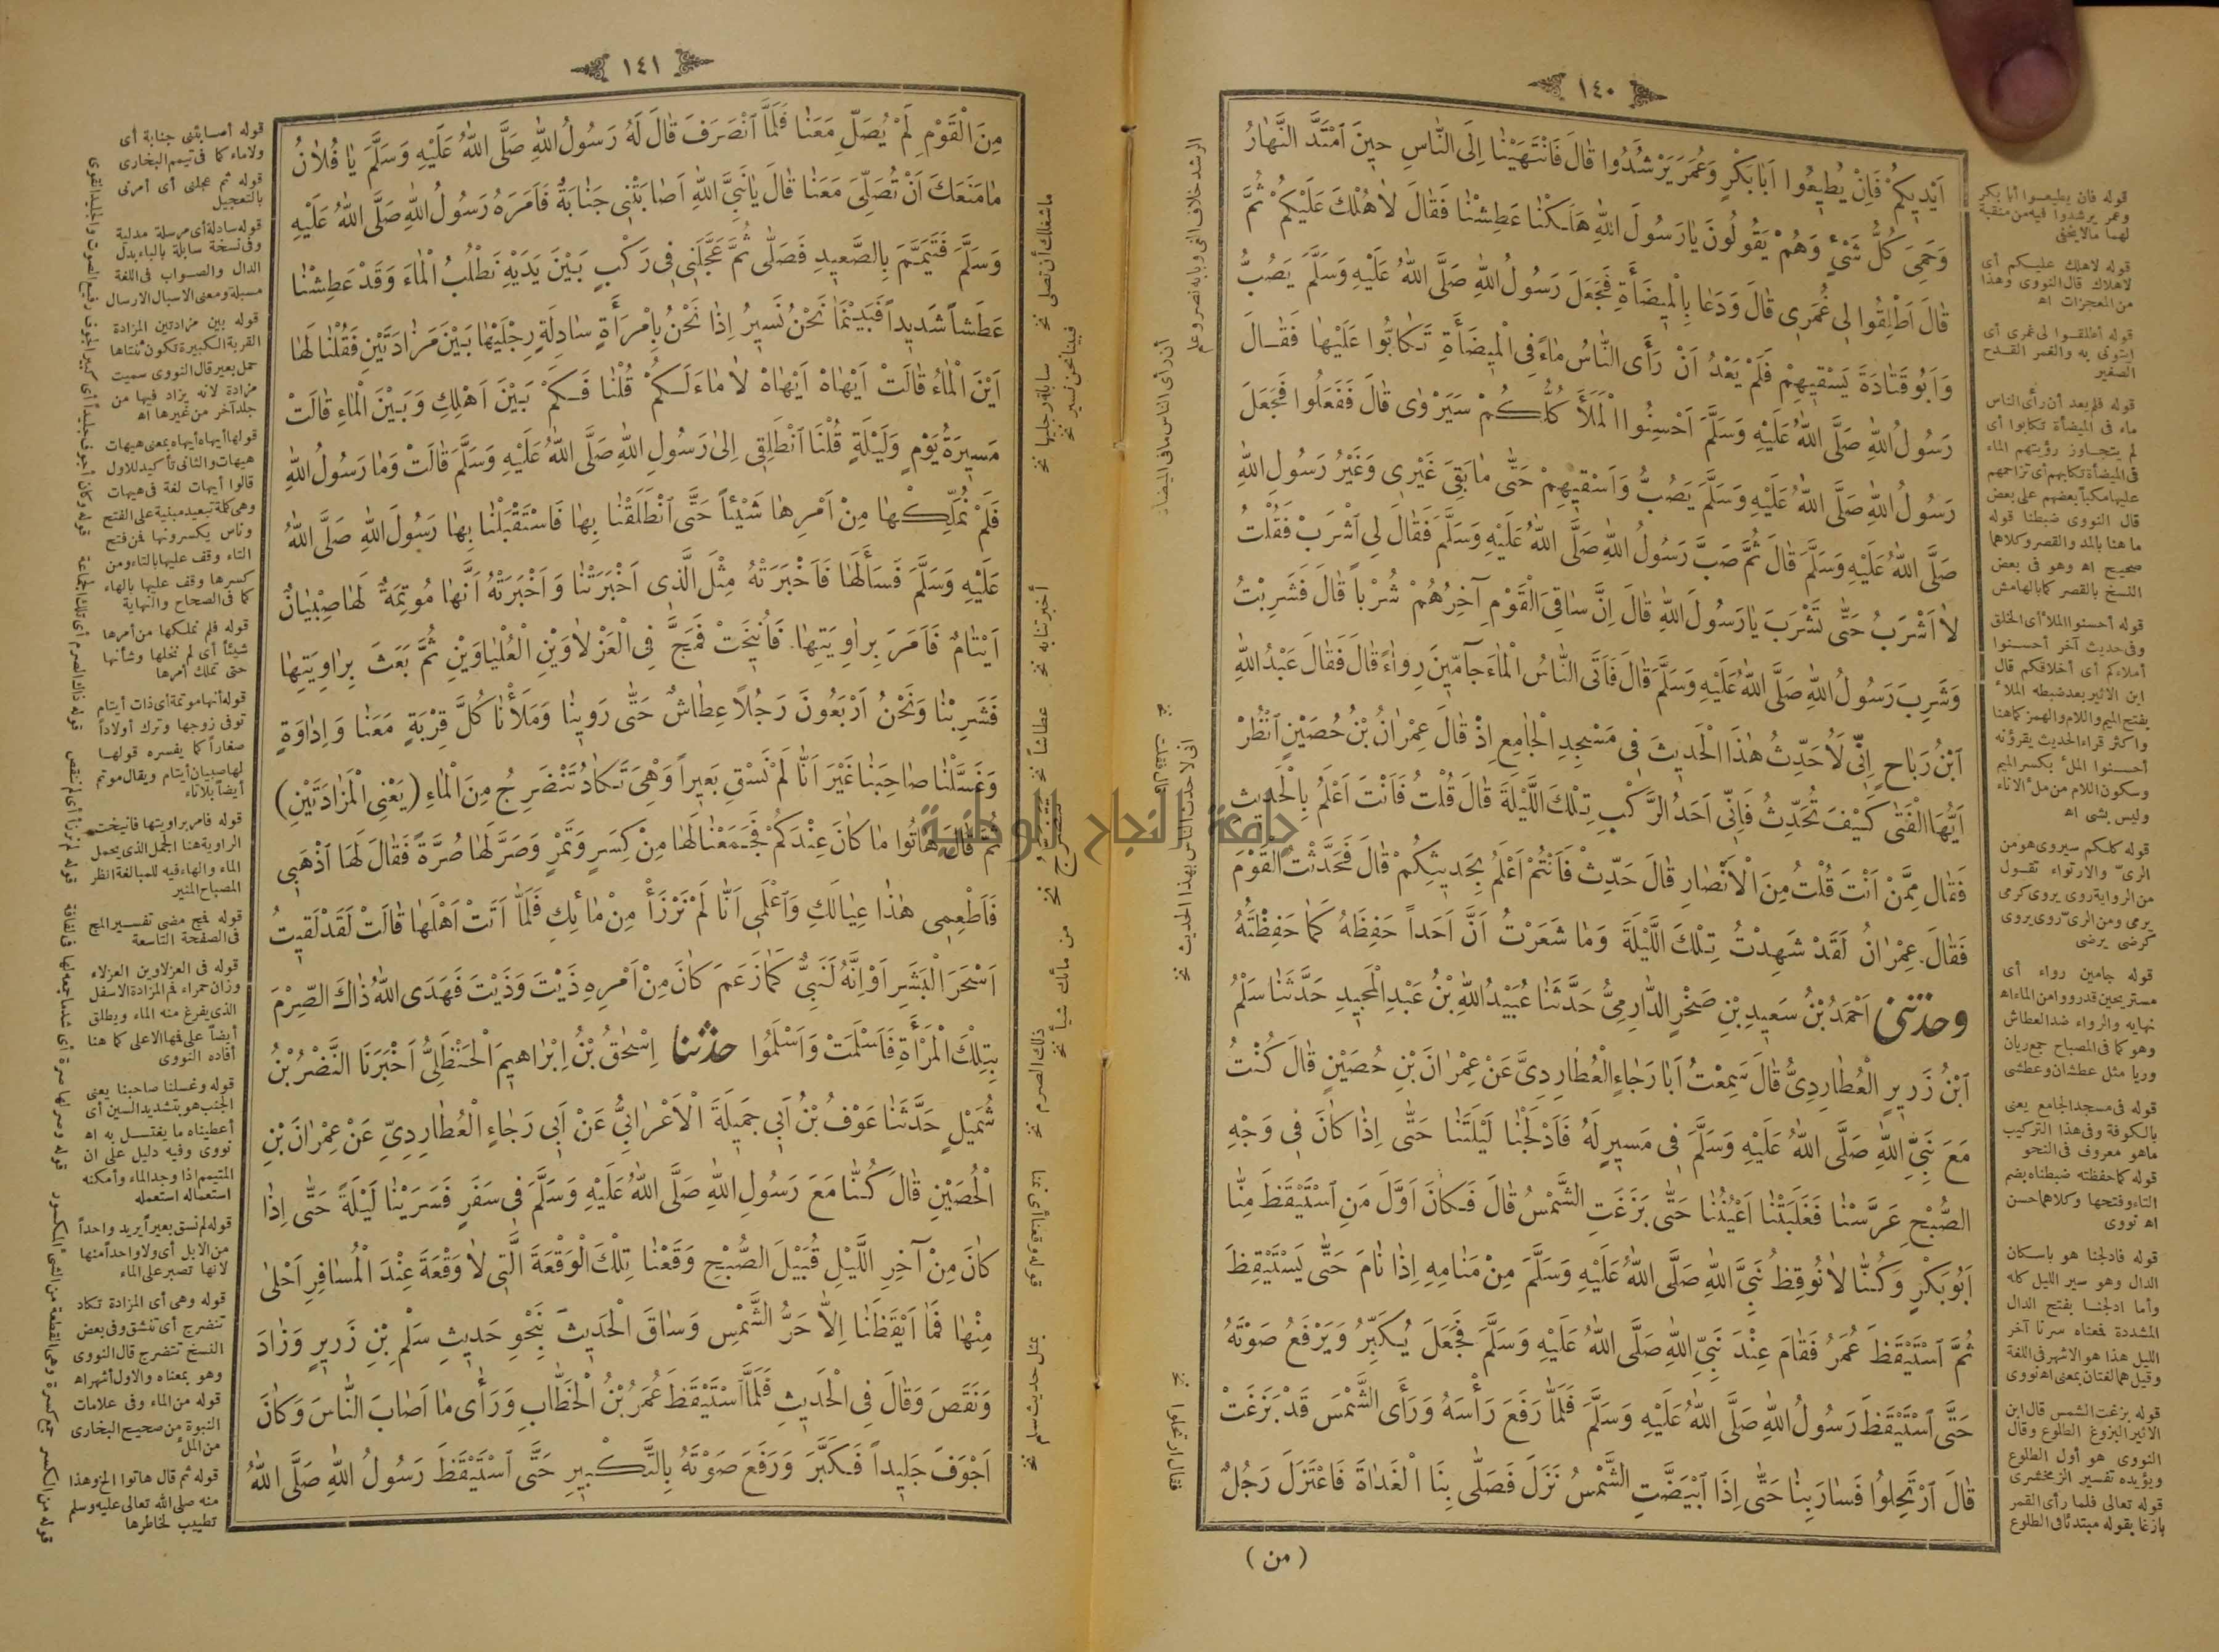 ١٤٠
اَيْدِيكُمْ فَاِنْ يُطِيعُوا اَبَا بَكْرٍ وَعُمَرَ يَرْشُدُوا قَالَ فَانْتَهَيْنَا اِلَى النَّاسِ حِينَ آمْتَدَّ النَّهَارُ
وَحَمِيَ كُلُّ شَيْءٍ وَهُمْ يَقُولُونَ يَا رَسُولَ اللّٰهِ هَلَكْنَا عَطِشْنَا فَقَالَ لَا هُلْكَ عَلَيْكُمْ ثُمَّ
قَالَ اَطْلِقُوا لِي غُمَرِي قَالَ وَدَعَا بِالْمِيضَأَةِ فَجَعَلَ رَسُولُ اللّٰهِ صَلَّى اللّٰهُ عَلَيْهِ وَسَلَّمَ يَصُبُّ
وَاَبُو قَتَادَةَ يَسْقِيهِمْ فَلَمْ يَعْدُ اَنْ رَأَى النَّاسُ مَاءً فِي الْمِيضَأَةِ تَكَابُّوا عَلَيْهَا فَقَالَ
رَسُولُ اللّٰهِ صَلَّى اللّٰهُ عَلَيْهِ وَسَلَّمَ اَحْسِنُوا الْمَلَأَ كُلُّكُمْ سَيَرْوٰى قَالَ فَفَعَلُوا فَجَعَلَ
رَسُولُ اللّٰهِ صَلَّى اللّٰهُ عَلَيْهِ وَسَلَّمَ يَصُبُّ وَاَسْقِيهِمْ حَتّٰى مَا بَقِيَ غَيْرِي وَغَيْرُ رَسُولِ اللّٰهِ
صَلَّى اللّٰهُ عَلَيْهِ وَسَلَّمَ قَالَ ثُمَّ صَبَّ رَسُولُ اللّٰهِ صَلَّى اللّٰهُ عَلَيْهِ وَسَلَّمَ فَقَالَ لِي آشْرَبْ فَقُلْتُ
لَا اَشْرَبُ حَتّٰى تَشْرَبَ يَا رَسُولَ اللّٰهِ قَالَ اِنَّ سَاقِيَ الْقَوْمِ آخِرُهُمْ شُرْباً قَالَ فَشَرِبْتُ
وَشَرِبَ رَسُولُ اللّٰهِ صَلَّى اللّٰهُ عَلَيْهِ وَسَلَّمَ قَالَ فَاَتَى النَّاسُ الْمَاءَ جَامِّينَ رِوَاءً قَالَ فَقَالَ عَبْدُ اللّٰهِ
آبْنُ رَبَاحٍ اِنِّي لَاُحَدِّثُ هٰذَا الْحَدِيثَ فِي مَسْجِدِ الْجَامِعِ اِذْ قَالَ عِمْرَانُ بْنُ حُصَيْنٍ آنْظُرْ
اَيُّهَا الْفَتٰى كَيْفَ تُحَدِّثُ فَاِنِّي اَحَدُ الرَّكْبِ تِلْكَ اللَّيْلَةَ قَالَ قُلْتُ فَاَنْتَ اَعْلَمُ بِالْحَدِيثِ
فَقَالَ مِمَّنْ اَنْتَ قُلْتُ مِنَ الْاَنْصَارِ قَالَ حَدِّثْ فَاَنْتُمْ اَعْلَمُ بِحَدِيثِكُمْ قَالَ فَحَدَّثْتُ الْقَوْمَ
فَقَالَ عِمْرَانُ لَقَدْ شَهِدْتُ تِلْكَ اللَّيْلَةَ وَمَا شَعَرْتُ اَنَّ اَحَداً حَفِظَهُ كَمَا حَفِظْتُهُ
وحدثني اَحْمَدُ بْنُ سَعِيدِ بْنِ صَخْرٍ الدَّارِمِيُّ حَدَّثَنَا عُبَيْدُ اللّٰهِ بْنُ عَبْدِ الْمَجِيدِ حَدَّثَنَا سَلْمُ
آبْنُ زَرِيرٍ الْعُطَارِدِيُّ قَالَ سَمِعْتُ اَبَا رَجَاءٍ الْعُطَارِدِيَّ عَنْ عِمْرَانَ بْنِ حُصَيْنٍ قَالَ كُنْتُ
مَعَ نَبِيِّ اللّٰهِ صَلَّى اللّٰهُ عَلَيْهِ وَسَلَّمَ فِي مَسِيرٍ لَهُ فَاَدْلَجْنَا لَيْلَتَنَا حَتّٰى اِذَا كَانَ فِي وَجْهِ
الصُّبْحِ عَرَّسْنَا فَغَلَبَتْنَا اَعْيُنُنَا حَتّٰى بَزَغَتِ الشَّمْسُ قَالَ فَكَانَ اَوَّلَ مَنِ آسْتَيْقَظَ مِنَّا
اَبُو بَكْرٍ وَكُنَّا لَا نُوقِظُ نَبِيَّ اللّٰهِ صَلَّى اللّٰهُ عَلَيْهِ وَسَلَّمَ مِنْ مَنَامِهِ اِذَا نَامَ حَتّٰى يَسْتَيْقِظَ
ثُمَّ آسْتَيْقَظَ عُمَرُ فَقَامَ عِنْدَ نَبِيِّ اللّٰهِ صَلَّى اللّٰهُ عَلَيْهِ وَسَلَّمَ فَجَعَلَ يُكَبِّرُ وَيَرْفَعُ صَوْتَهُ
حَتّٰى آسْتَيْقَظَ رَسُولُ اللّٰهِ صَلَّى اللّٰهُ عَلَيْهِ وَسَلَّمَ فَلَمَّا رَفَعَ رَأْسَهُ وَرَأَى الشَّمْسَ قَدْ بَزَغَتْ
قَالَ آرْتَحِلُوا فَسَارَ بِنَا حَتّٰى اِذَا آبْيَضَّتِ الشَّمْسُ نَزَلَ فَصَلّٰى بِنَا الْغَدَاةَ فَاعْتَزَلَ رَجُلٌ
( من )
قوله فان يطيعوا أبا بكر
وعمر يرشدوا فيه من منقبة
لهما مالا يخفى
قوله لاهلك عليكم أى
لاهلاك قال النووى وهذا
من المعجزات اه
قوله أطلقوا لى غمرى أى
ايتونى به والغمر القدح
الصغير
قوله فلم يعد أن رأى الناس
ماء فى الميضأة تكابوا أى
لم يتجاوز رؤيتهم الماء
فى الميضأة تكابهم أى تزاحمهم
عليها مكباً بعضهم على بعض
قال النووى ضبطنا قوله
ما هنا بالمد والقصر وكلاهما
صحيح اه وهو فى بعض
النسخ بالقصر كما بالهامش
قوله أحسنوا الملأ أى الخلق
وفى حديث آخر أحسنوا
أملاءكم أى أخلاقكم قال
ابن الاثير بعد ضبطه الملأ
بفتح الميم واللام والهمز كما هنا
واكثر قراء الحديث يقرؤنه
أحسنوا الملء بكسر الميم
وسكون اللام من ملء الاناء
وليس بشى اه
قوله كلكم سيروى هو من
الرىّ والارتواء تقول
من الرواية روى يروى كرمى
يرمى ومن الرىّ روى يروى
كرضى يرضى
قوله جامين رواء أى
مستريحين قد رووا من الماء اه
نهايه والرواء ضد العطاش
وهو كما فى المصباح جمع ريان
وريا مثل عطشان وعطشى
قوله فى مسجد الجامع يعنى
بالكوفة وفى هذا التركيب
ماهو معروف فى النحو
قوله كما حفظته ضبطناه بضم
التاء وفتحها وكلاهما حسن
اه نووى
قوله فادلجنا هو باسكان
الدال وهو سير الليل كله
وأما ادلجنا بفتح الدال
المشددة فمعناه سرنا آخر
الليل هذا هو الاشهر فى اللغة
وقيل هما لغتان بمعنى اه نووى
قوله بزغت الشمس قال ابن
الاثير البزوغ الطلوع وقال
النووى هو أول الطلوع
ويؤيده تفسير الزمخشرى
قوله تعالى فلما رأى القمر
بازغا بقوله مبتدئا فى الطلوع
الرشد خلاف الغى وبابه نصر وعلم
أن رأى الناس ما فى الميضاة
انى لا حدث الناس بهذا الحديث نخ
فقال ارتحلوا نخ
١٤١
مِنَ الْقَوْمِ لَمْ يُصَلِّ مَعَنَا فَلَمَّا آنْصَرَفَ قَالَ لَهُ رَسُولُ اللّٰهِ صَلَّى اللّٰهُ عَلَيْهِ وَسَلَّمَ يَا فُلَانُ
مَا مَنَعَكَ اَنْ تُصَلِّيَ مَعَنَا قَالَ يَا نَبِيَّ اللّٰهِ اَصَابَتْنِي جَنَابَةٌ فَاَمَرَهُ رَسُولُ اللّٰهِ صَلَّى اللّٰهُ عَلَيْهِ
وَسَلَّمَ فَتَيَمَّمَ بِالصَّعِيدِ فَصَلّٰى ثُمَّ عَجَّلَنِي فِي رَكْبٍ بَيْنَ يَدَيْهِ نَطْلُبُ الْمَاءَ وَقَدْ عَطِشْنَا
عَطَشاً شَدِيداً فَبَيْنَمَا نَحْنُ نَسِيرُ اِذَا نَحْنُ بِامْرَأَةٍ سَادِلَةٍ رِجْلَيْهَا بَيْنَ مَزَادَتَيْنِ فَقُلْنَا لَهَا
اَيْنَ الْمَاءُ قَالَتْ اَيْهَاهْ اَيْهَاهْ لَا مَاءَ لَكُمْ قُلْنَا فَكَمْ بَيْنَ اَهْلِكِ وَبَيْنَ الْمَاءِ قَالَتْ
مَسِيرَةُ يَوْمٍ وَلَيْلَةٍ قُلْنَا آنْطَلِقِي اِلٰى رَسُولِ اللّٰهِ صَلَّى اللّٰهُ عَلَيْهِ وَسَلَّمَ قَالَتْ وَمَا رَسُولُ اللّٰهِ
فَلَمْ نُمَلِّكْهَا مِنْ اَمْرِهَا شَيْئاً حَتَّى آنْطَلَقْنَا بِهَا فَاسْتَقْبَلْنَا بِهَا رَسُولَ اللّٰهِ صَلَّى اللّٰهُ
عَلَيْهِ وَسَلَّمَ فَسَأَلَهَا فَاَخْبَرَتْهُ مِثْلَ الَّذِي اَخْبَرَتْنَا وَاَخْبَرَتْهُ اَنَّهَا مُوتِمَةٌ لَهَا صِبْيَانٌ
اَيْتَامٌ فَاَمَرَ بِرَاوِيَتِهَا فَاُنِيخَتْ فَمَجَّ فِي الْعَزْلَاوَيْنِ الْعُلْيَاوَيْنِ ثُمَّ بَعَثَ بِرَاوِيَتِهَا
فَشَرِبْنَا وَنَحْنُ اَرْبَعُونَ رَجُلاً عِطَاشٌ حَتّٰى رَوِينَا وَمَلَأْنَا كُلَّ قِرْبَةٍ مَعَنَا وَاِدَاوَةٍ
وَغَسَّلْنَا صَاحِبَنَا غَيْرَ اَنَّا لَمْ نَسْقِ بَعِيراً وَهِيَ تَكَادُ تَنْضَرِجُ مِنَ الْمَاءِ (يَعْنِي الْمَزَادَتَيْنِ)
ثُمَّ قَالَ هَاتُوا مَا كَانَ عِنْدَكُمْ فَجَمَعْنَا لَهَا مِنْ كِسَرٍ وَتَمْرٍ وَصَرَّ لَهَا صُرَّةً فَقَالَ لَهَا آذْهَبِي
فَاَطْعِمِي هٰذَا عِيَالَكِ وَآعْلَمِي اَنَّا لَمْ نَرْزَأْ مِنْ مَائِكِ فَلَمَّا اَتَتْ اَهْلَهَا قَالَتْ لَقَدْ لَقِيتُ
اَسْحَرَ الْبَشَرِ اَوْ اِنَّهُ لَنَبِيٌّ كَمَا زَعَمَ كَانَ مِنْ اَمْرِهِ ذَيْتَ وَذَيْتَ فَهَدَى اللّٰهُ ذَاكَ الصِّرْمَ
بِتِلْكَ الْمَرْأَةِ فَاَسْلَمَتْ وَاَسْلَمُوا حدثنا اِسْحٰقُ بْنُ اِبْرَاهِيمَ الْحَنْظَلِيُّ اَخْبَرَنَا النَّضْرُ بْنُ
شُمَيْلٍ حَدَّثَنَا عَوْفُ بْنُ اَبِي جَمِيلَةَ الْاَعْرَابِيُّ عَنْ اَبِي رَجَاءٍ الْعُطَارِدِيِّ عَنْ عِمْرَانَ بْنِ
الْحُصَيْنِ قَالَ كُنَّا مَعَ رَسُولِ اللّٰهِ صَلَّى اللّٰهُ عَلَيْهِ وَسَلَّمَ فِي سَفَرٍ فَسَرَيْنَا لَيْلَةً حَتّٰى اِذَا
كَانَ مِنْ آخِرِ اللَّيْلِ قُبَيْلَ الصُّبْحِ وَقَعْنَا تِلْكَ الْوَقْعَةَ الَّتِي لَا وَقْعَةَ عِنْدَ الْمُسَافِرِ اَحْلٰى
مِنْهَا فَمَا اَيْقَظَنَا اِلَّا حَرُّ الشَّمْسِ وَسَاقَ الْحَدِيثَ بِنَحْوِ حَدِيثِ سَلْمِ بْنِ زَرِيرٍ وَزَادَ
وَنَقَصَ وَقَالَ فِي الْحَدِيثِ فَلَمَّا آسْتَيْقَظَ عُمَرُ بْنُ الْخَطَّابِ وَرَأَى مَا اَصَابَ النَّاسَ وَكَانَ
اَجْوَفَ جَلِيداً فَكَبَّرَ وَرَفَعَ صَوْتَهُ بِالتَّكْبِيرِ حَتَّى آسْتَيْقَظَ رَسُولُ اللّٰهِ صَلَّى اللّٰهُ
ما شغلك أن تصلى نخ
فبينا نحن نسير نخ
سابلة رجليها نخ
أخبرتنا به نخ
عطاشاً نخ
تتضرج نخ
من مائك شيأ نخ
ذلك الصرم نخ
بمثل حديث سلم نخ
قوله أصابتنى جنابة أى
ولاماء كما فى تيمم البخارى
قوله ثم عجلنى أى أمرنى
بالتعجيل
قوله سادلة أى مرسلة مدلية
وفى نسخة سابلة بالباء بدل
الدال والصواب فى اللغة
مسبلة ومعنى الاسبال الارسال
قوله بين مزادتين المزادة
القربة الكبيرة تكون ثنتاها
حمل بعير قال النووى سميت
مزادة لانه يزاد فيها من
جلد آخر من غيرها اه
قولها أيهاه أيهاه بمعنى هيهات
هيهات والثانى تأكيد للاول
قالوا أيهات لغة فى هيهات
وهى كلمة تبعيد مبنية على الفتح
وناس يكسرونها فمن فتح
التاء وقف عليها بالتاء ومن
كسرها وقف عليها بالهاء
كما فى الصحاح والنهاية
قوله فلم نملكها من أمرها
شيئاً أى لم نخلها وشأنها
حتى تملك أمرها
قوله أنها موتمة أى ذات أيتام
توفى زوجها وترك أولاداً
صغاراً كما يفسره قولها
لها صبيان أيتام ويقال موتم
أيضاً بلا تاء
قوله فامر براويتها فانيخت
الراوية هنا الجمل الذى يحمل
الماء والهاء فيه للمبالغة انظر
المصباح المنير
قوله فمج مضى تفسير المج
فى الصفحة التاسعة
قوله فى العزلاوين العزلاء
وزان حمراء فم المزادة الاسفل
الذى يفرغ منه الماء ويطلق
أيضاً على فمها الاعلى كما هنا
أفاده النووى
قوله وغسلنا صاحبنا يعنى
الجنب هو بتشديد السين أى
أعطيناه ما يغتسل به اه
نووى وفيه دليل على ان
المتيمم اذا وجد الماء وأمكنه
استعماله استعمله
قوله لم نسق بعيراً يريد واحداً
من الابل أى ولا واحداً منها
لانها تصبر على الماء
قوله وهى أى المزادة تكاد
تنضرج أى تنشق وفى بعض
النسخ تتضرج قال النووى
وهو بمعناه والاول أشهر اه
قوله من الماء وفى علامات
النبوة من صحيح البخارى
من الملء
قوله ثم قال هاتوا الخ وهذا
منه صلى الله تعالى عليه وسلم
تطييب لخاطرها
جامعة النجاح الوطنية